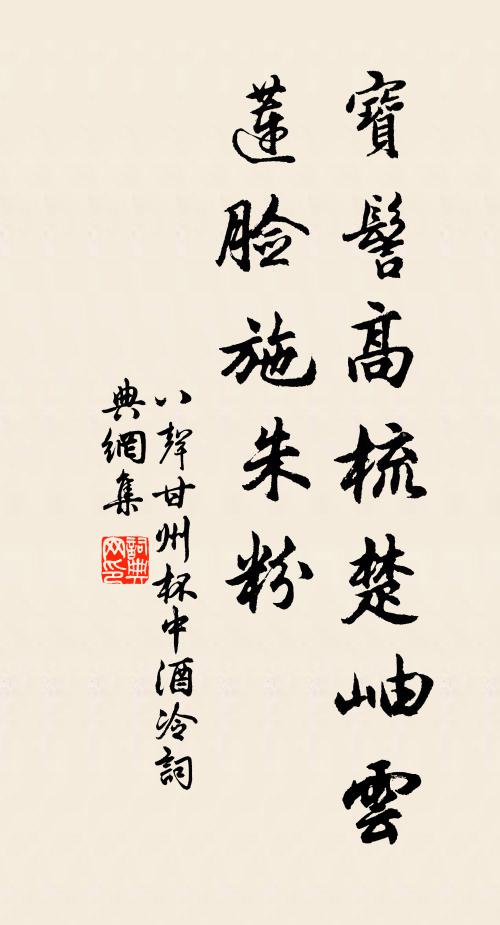 寶髻高梳楚岫雲
蓮臉施朱粉
八聲甘州杯中酒冷詞
典網集
詞典
网印